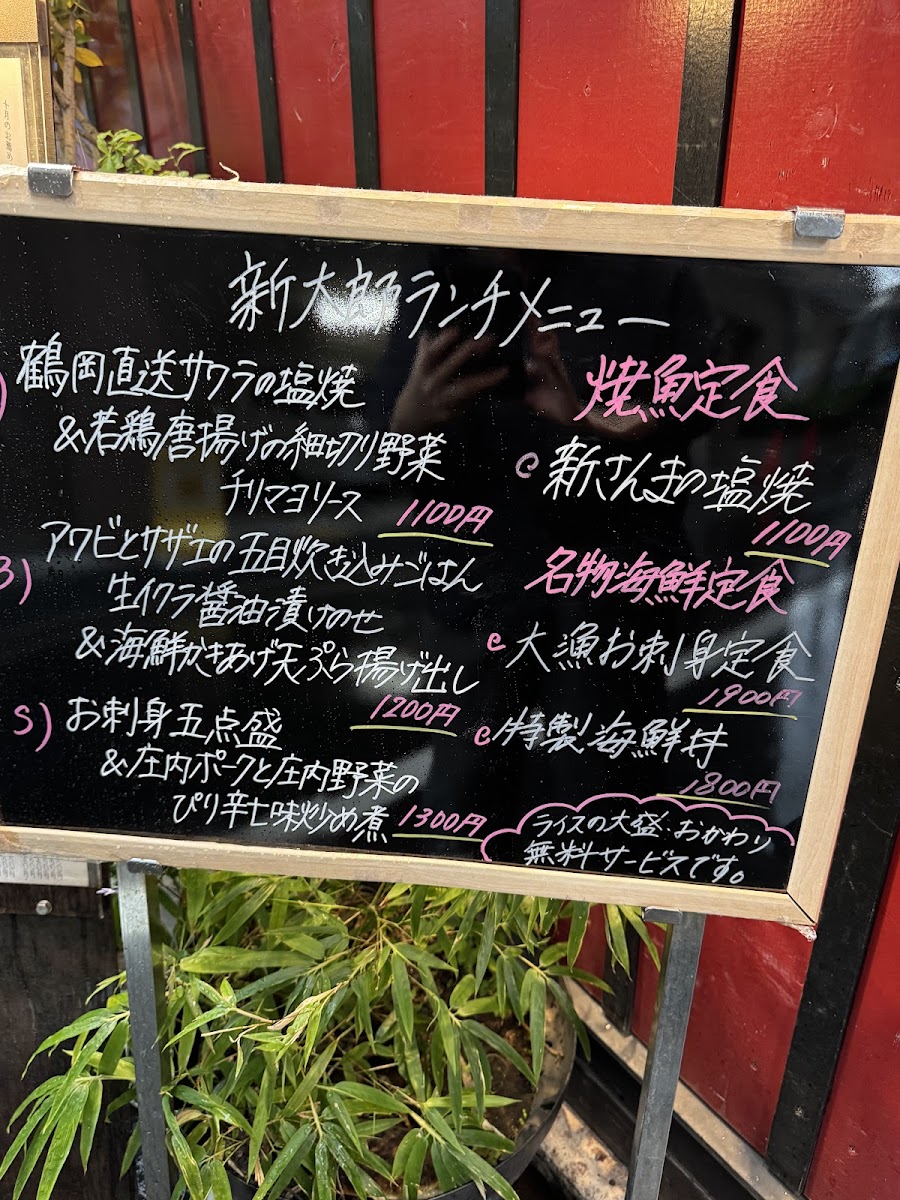 新太郎ランチメニュー
)
鶴岡直送サワラの塩焼
&若鶏唐揚げの細切り野菜
チリマヨソース
1100円
B)
アワビとサザエの五目炊き込みごはん
生イクラ醤油漬けのせ
&海鮮かきあげ天ぷら揚げ出し
1200円
S)
お刺身五点盛
&庄内ポークと庄内野菜の
ぴり辛七味炒め煮 1300円
焼魚定食
新さんまの塩焼
1100円
名物海鮮定食
大漁お刺身定食
1900円
特製海鮮丼
1800円
ライスの大盛・おかわり
無料サービスです。